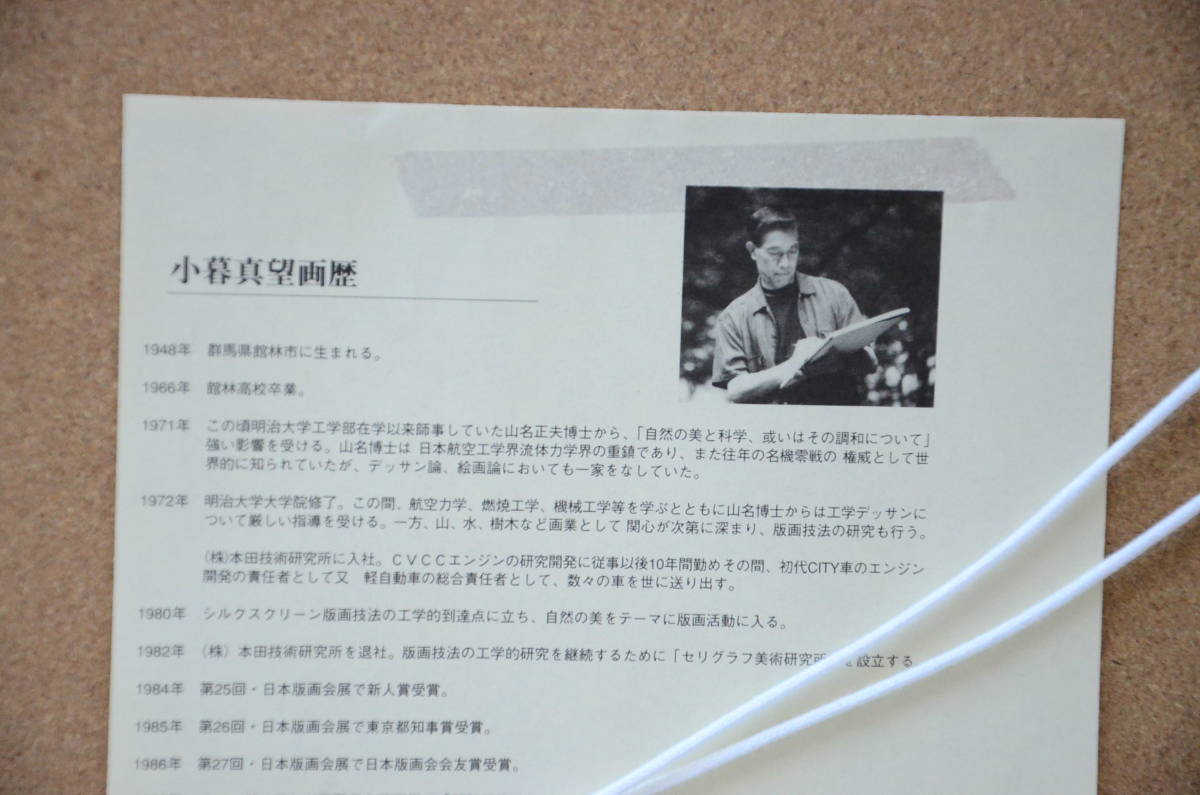 小暮真望画歴
1948年 群馬県館林市に生まれる。
1966年 館林高校卒業。
1971年 この頃明治大学工学部在学以来師事していた山名正夫博士から、「自然の美と科学、或いはその調和について」
強い影響を受ける。山名博士は 日本航空工学界流体力学界の重鎮であり、また往年の名機零戦の 権威として世
界的に知られていたが、デッサン論、絵画論においても一家をなしていた。
1972年 明治大学大学院修了。この間、航空力学、燃焼工学、機械工学等を学ぶとともに山名博士からは工学デッサンに
ついて厳しい指導を受ける。一方、山、水、樹木など画業として 関心が次第に深まり、版画技法の研究も行う。
(株)本田技術研究所に入社。CVCCエンジンの研究開発に従事以後10年間勤めその間、初代CITY車のエンジン
開発の責任者として又 軽自動車の総合責任者として、数々の車を世に送り出す。
1980年 シルクスクリーン版画技法の工学的到達点に立ち、自然の美をテーマに版画活動に入る。
1982年 (株) 本田技術研究所を退社。版画技法の工学的研究を継続するために「セリグラフ美術研究所 を設立する
1984年 第25回・日本版画会展で新人賞受賞。
1985年 第26回・日本版画会展で東京都知事賞受賞。
1986年 第27回・日本版画会展で日本版画会会友賞受賞。